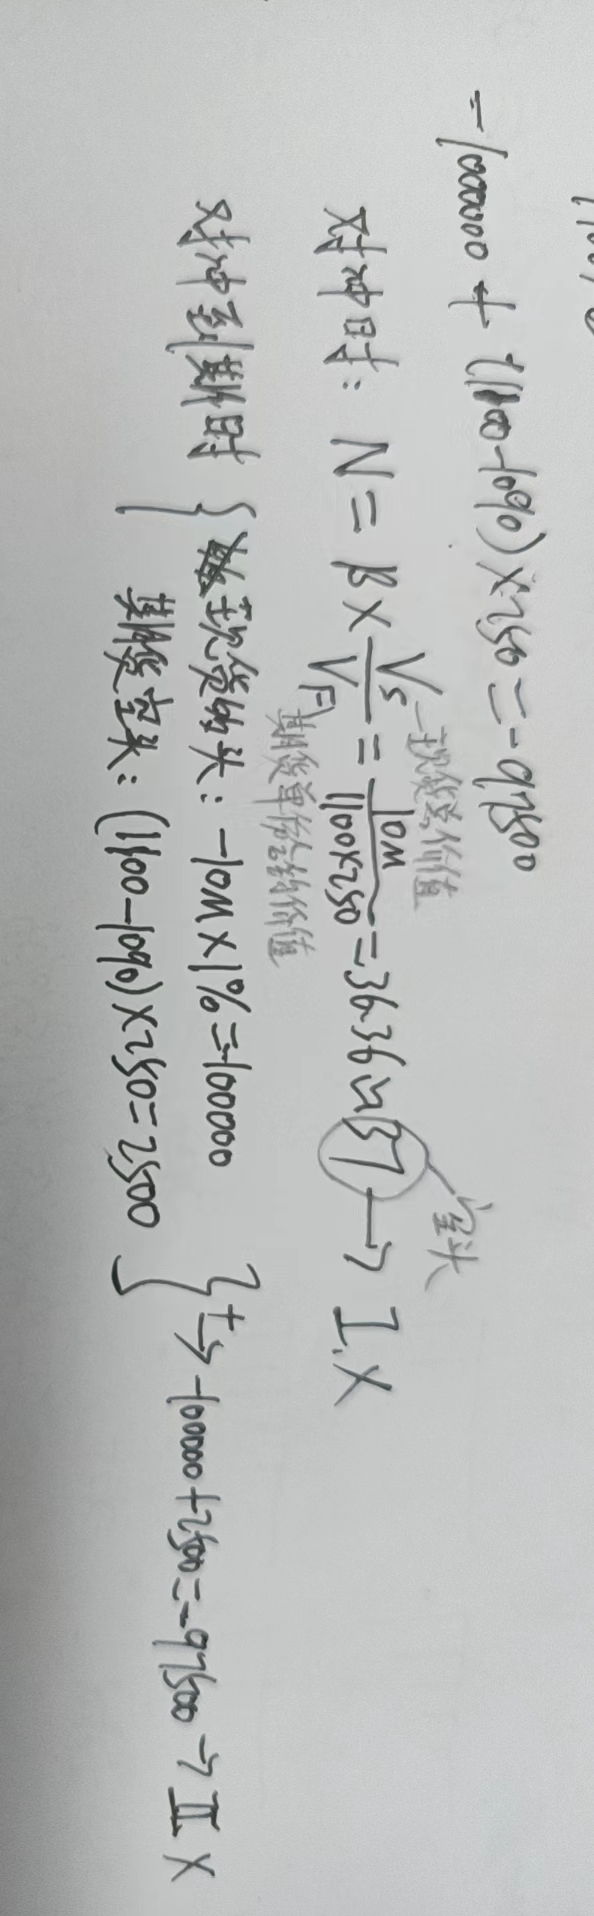 -1000000 + (1100-1090)×250=-97500
现货总价值
对冲时: N = β × Vs/VF = 10M/1100×250 = 36.36 ≈ 37 → I.X
空头
期货单份合约价值
对冲到期时 { 现货多头: -10M×1%=-100000
期货空头: (1100-1090)×250=2500 } + → -100000+2500=-97500 → II X